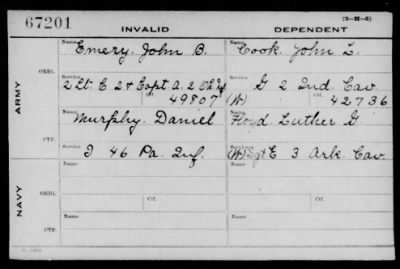 67201
INVALID DEPENDENT
(3—111—3)
ARMY
ORIG.
Name Emery, John B. Name Cook, John L.
Service 2 Lt. C 2 & Capt A. 2 Oh. Inf Service G 2 Ind. Cav.
Ctf. 49807 (W) Ctf. 42736
CTF.
Name Murphy, Daniel Name Floyd, Luther G
Service I 46 Pa. Inf. Service (W) Sgt E 3 Ark. Cav.
NAVY
ORIG.
Name Name
Service Ctf. Service Ctf.
CTF.
Name Name
Service Service